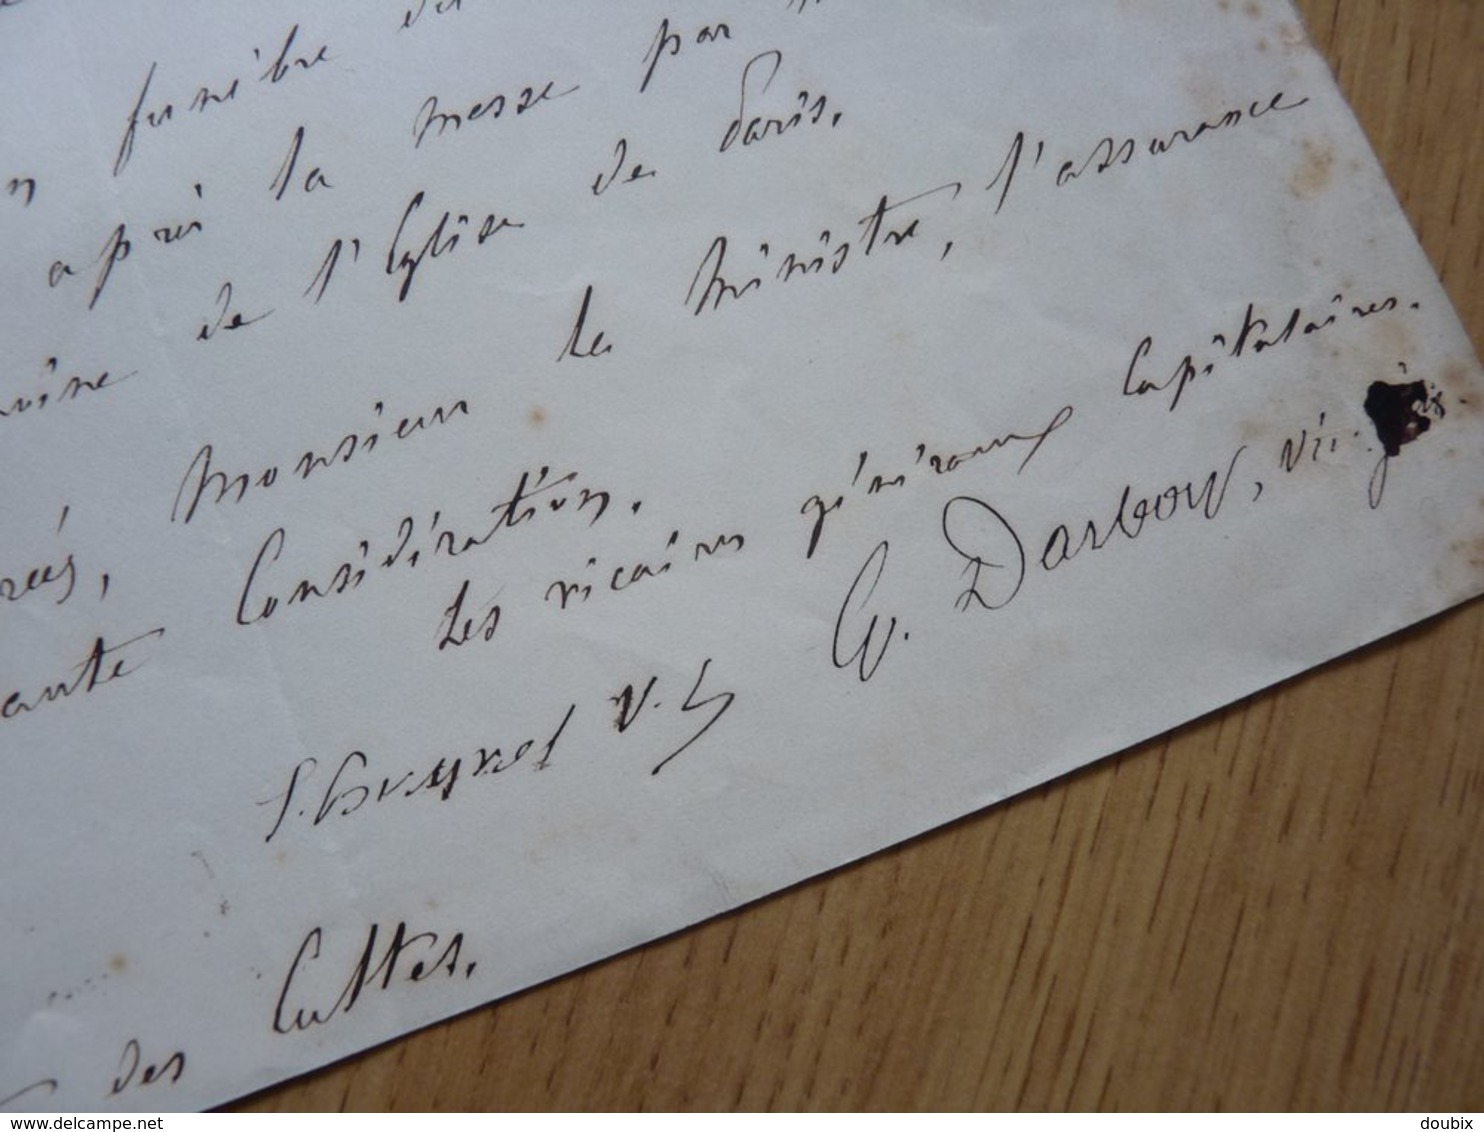 funèbre
après la messe par
de l'Eglise de Paris.
Monsieur le Ministre, l'assurance
Considération.
Les vicaires généraux Capitulaires.
V. G. G. Darboy,
des Cultes.
www.delcampe.net
doubix